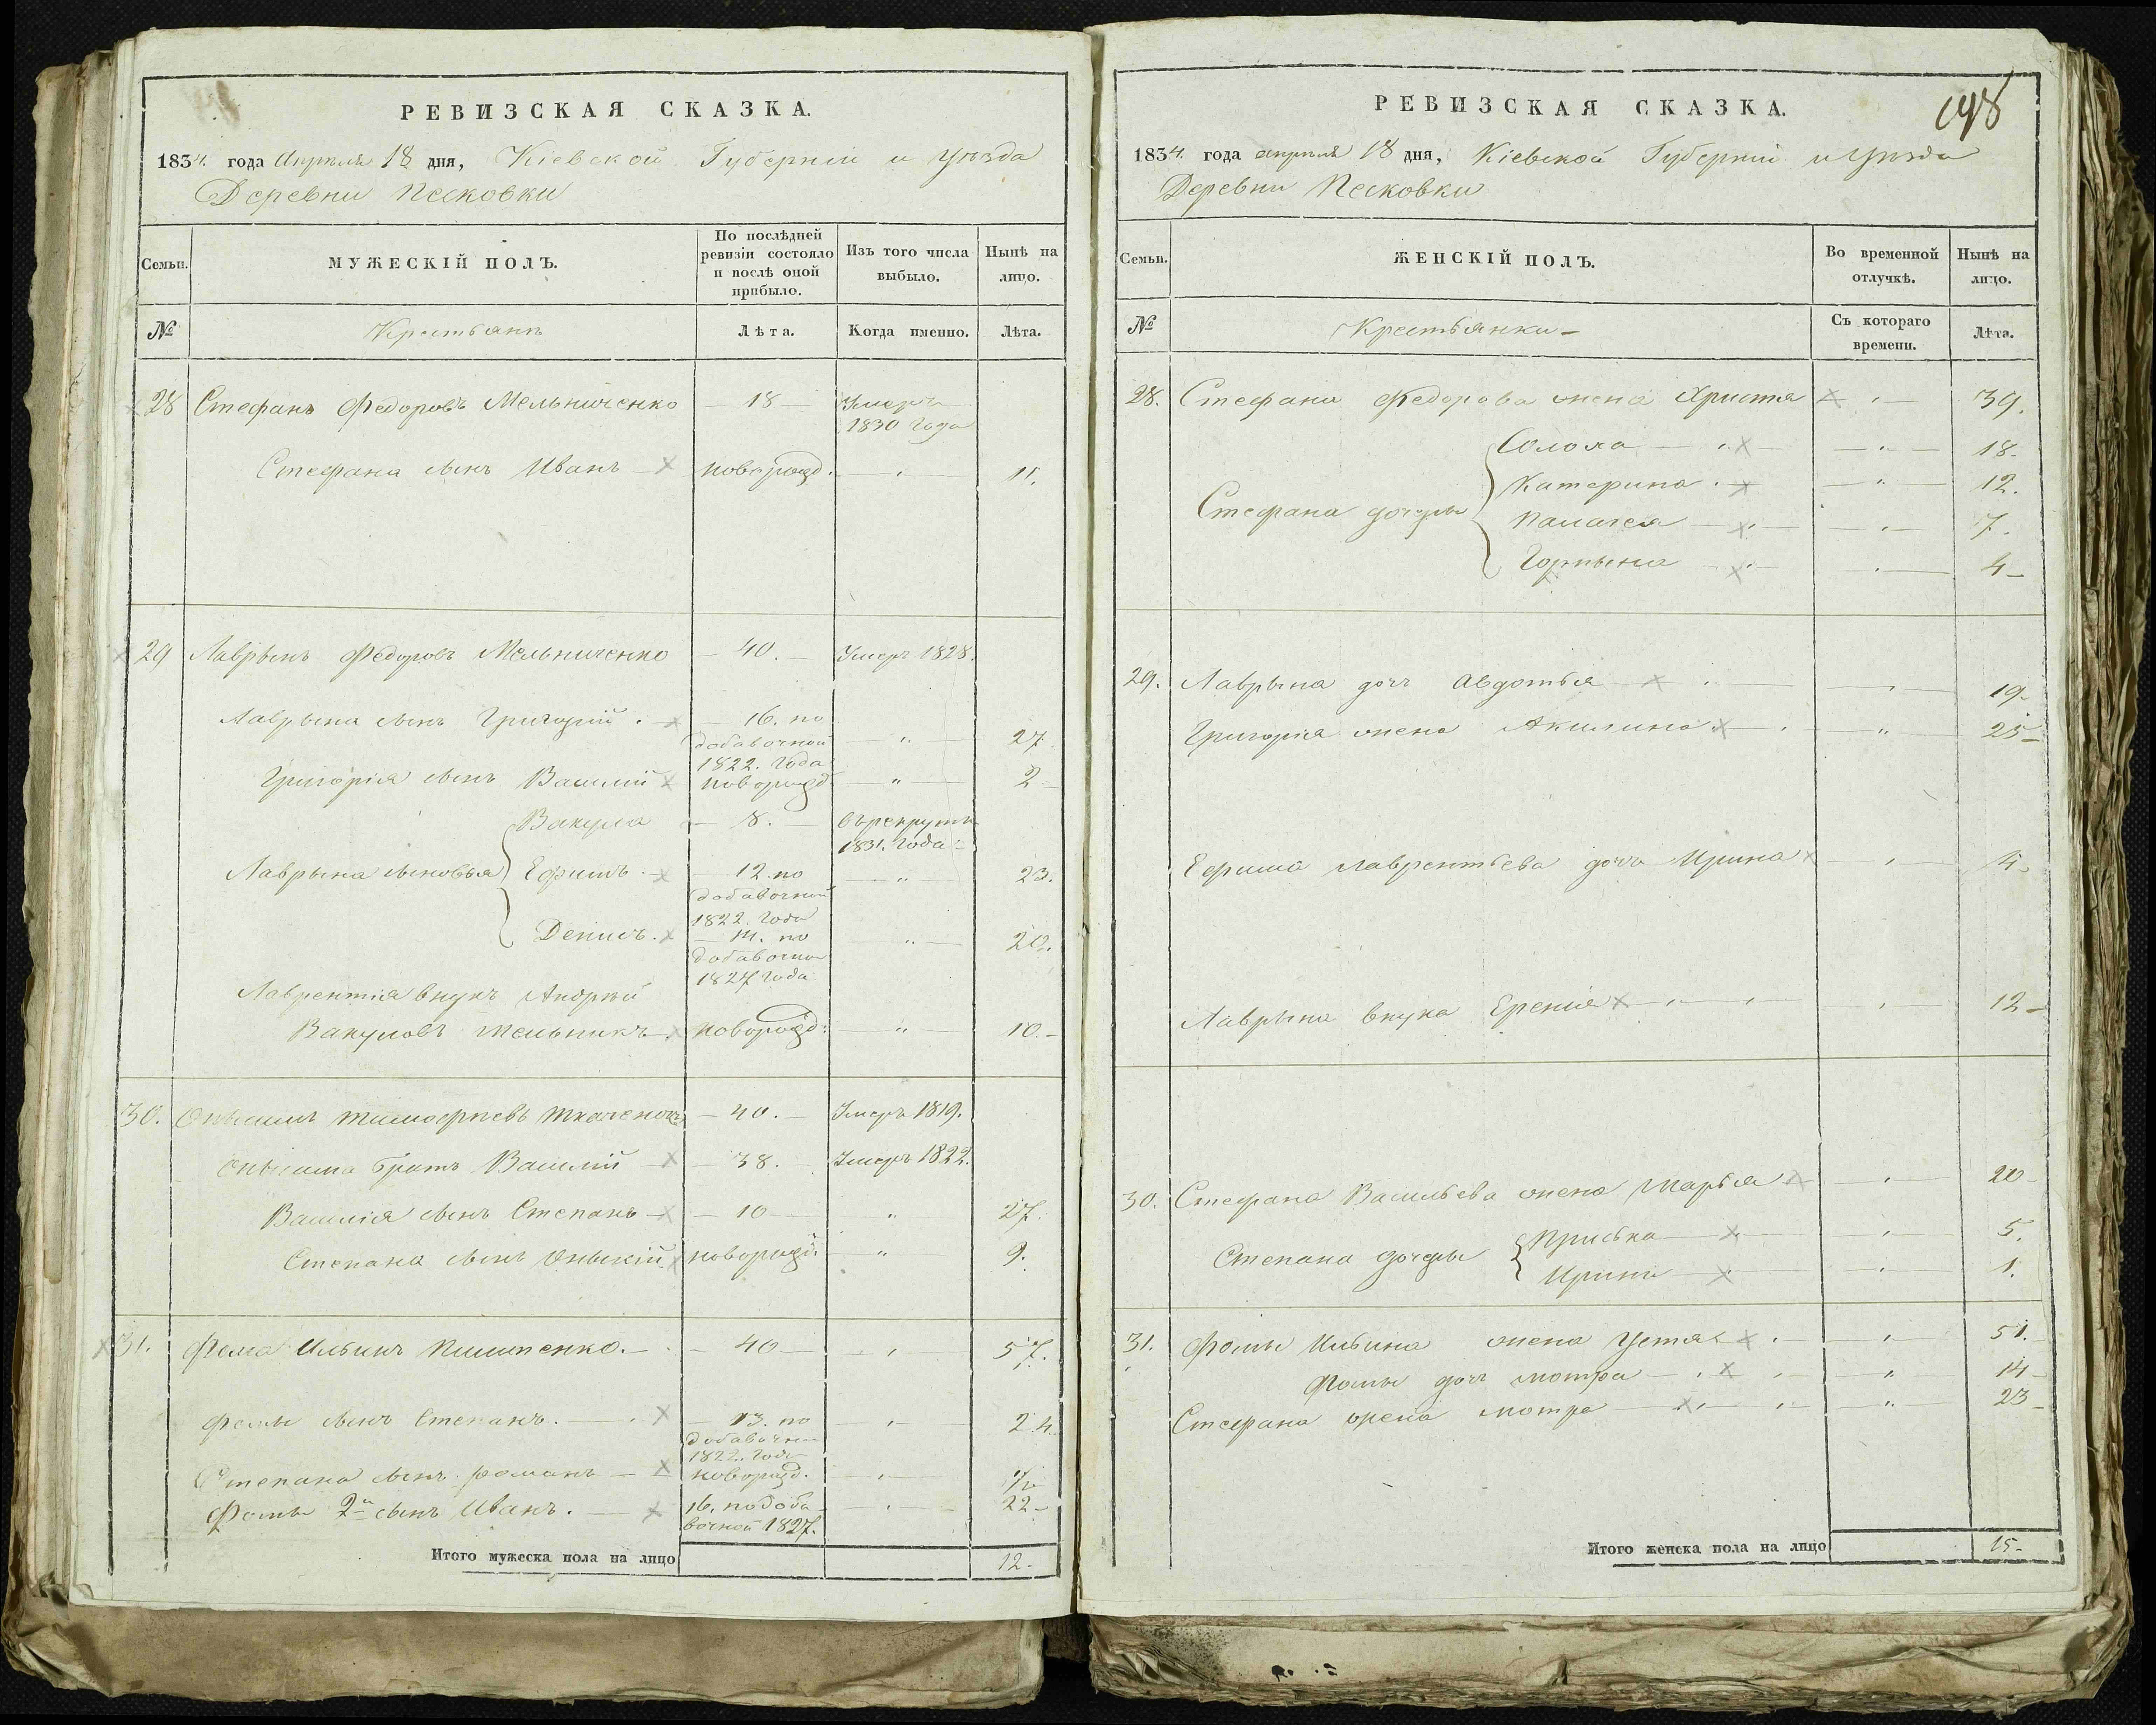 РЕВИЗСКАЯ СКАЗКА.
1834. года Апреля 18 дня, Кіевской Губерніи и Уѣзда
Деревни Песковки
Семьи.
МУЖЕСКІЙ ПОЛЪ.
По послѣдней ревизіи состояло и послѣ оной прибыло.
Изъ того числа выбыло.
Нынѣ на лицо.
№
Крестьянъ
Лѣта.
Когда именно.
Лѣта.
28 Стефанъ Федоровъ Мельниченко — 18 — Умеръ
1830 года
Стефана сынъ Иванъ — новорожд. 11.
29 Лаврынъ Федоровъ Мельниченко — 40. — Умеръ 1828.
Лаврына сынъ Григорій. — 16. по
добавочной 27.
1822. года
Григорія сынъ Василій новорожд 2
Вакула — 8. — въ рекруты
1831. года
Лаврына сыновья Ефимъ. 12. по 23.
добавочной
1822. года
Денисъ. по 20.
добавочной
1827 года
Лаврентія внукъ Андрей
Вакуловъ Мельникъ — новорожд: 10. —
30. Тимофеевъ — 40. — Умеръ 1819.
братъ Василій — 38. — Умеръ 1822.
Василія сынъ Степанъ — 10 27.
Степана сынъ новорожд. 9.
31. Фома Ильинъ — 40 — 57.
Фомы сынъ Степанъ. — 13. по 24.
добавочной
1822. года
Степана сынъ Романъ — новорожд.
Фомы 2й сынъ Иванъ. — 16. по доба 22
вочной 1827.
Итого мужеска пола на лицо 12 -
148
РЕВИЗСКАЯ СКАЗКА.
1834. года апреля 18 дня, Кіевской Губерніи и Уѣзда
Деревни Песковки
Семьи.
ЖЕНСКІЙ ПОЛЪ.
Во временной отлучкѣ.
Нынѣ на лицо.
№
Крестьянки —
Съ котораго времени.
Лѣта.
28. Стефана Федорова жена Христя 39.
Солоха 18
Катерина 12.
Стефана дочеры
Палагея 7.
Горпына 4 —
29. Лаврына дочь Авдотья 19
Григорія жена Акилина 25
Ефима Лаврентьева дочь Ирина 4
Лаврына внука 12 —
30. Стефана Васильева жена Марья 20
Приська 5.
Степана дочеры
Ирина 1.
31. Фомы Ильина жена Устя 51.
Фомы дочь Мотра 14
Стефана жена Мотра 23
Итого женска пола на лицо 15 -